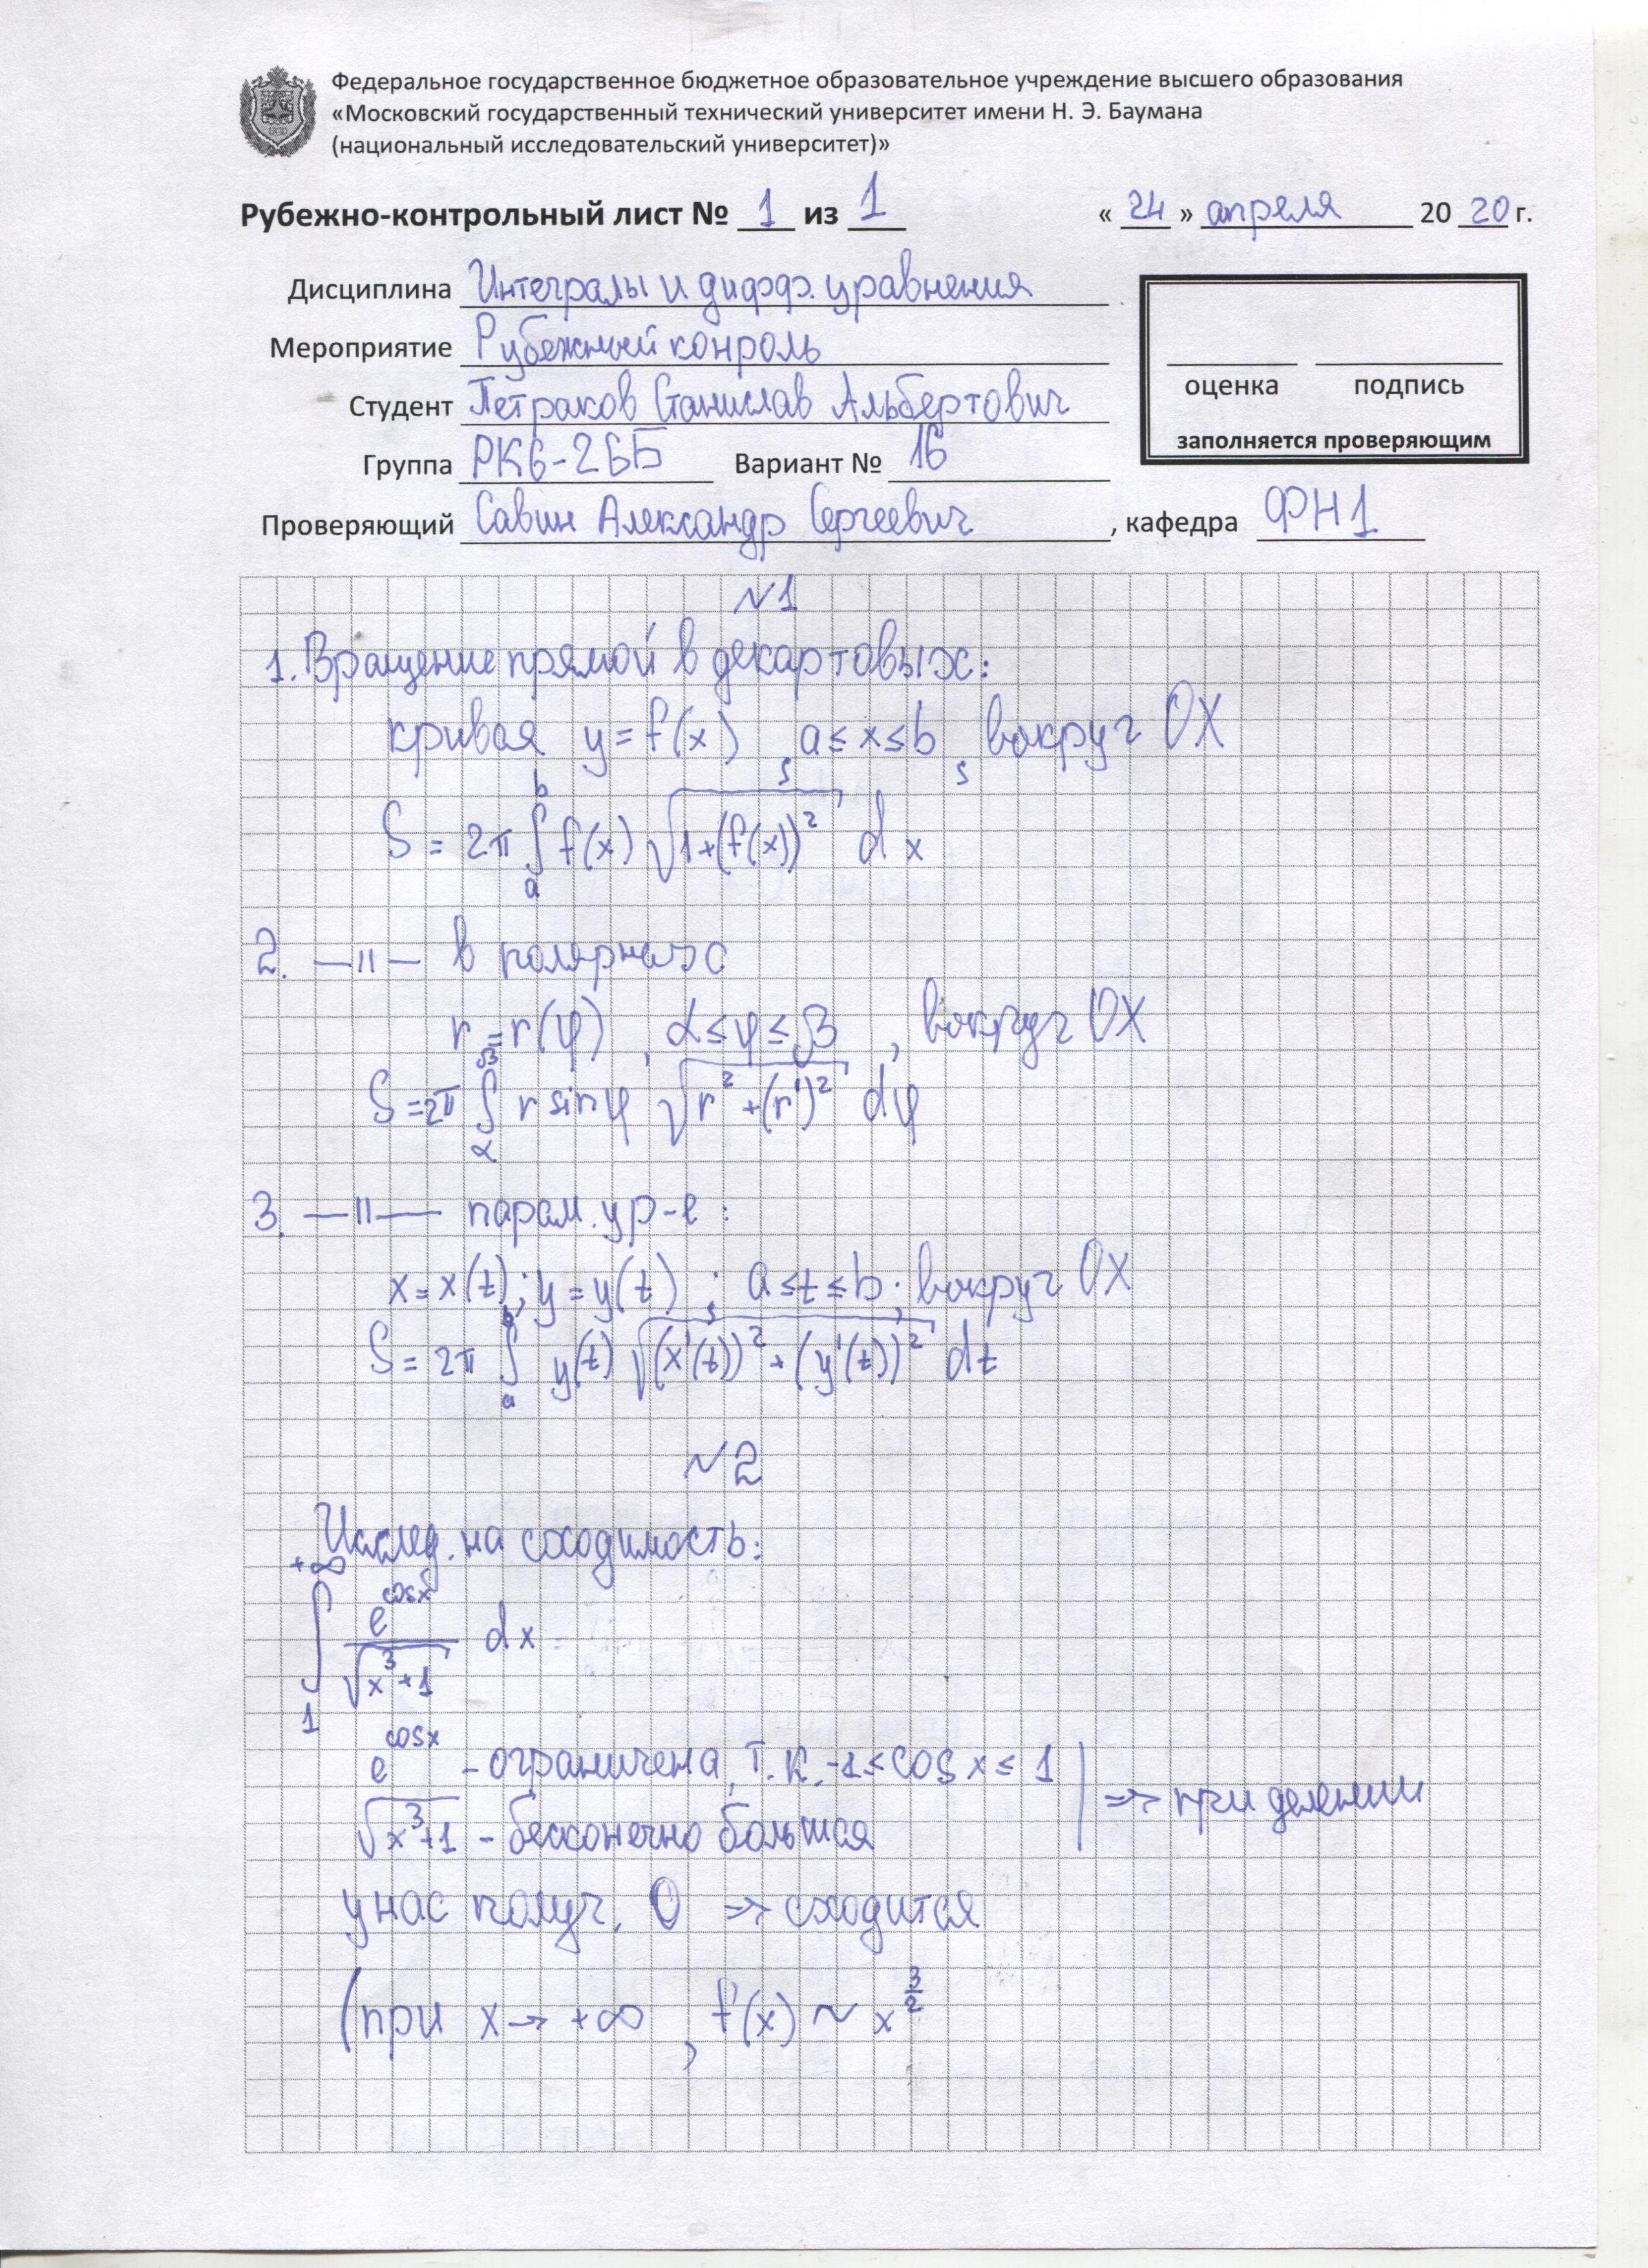 Федеральное государственное бюджетное образовательное учреждение высшего образования
«Московский государственный технический университет имени Н. Э. Баумана
(национальный исследовательский университет)»
Рубежно-контрольный лист № 1 из 1 « 24 » апреля 20 20 г.
Дисциплина Интегралы и дифф. уравнения
Мероприятие Рубежный конроль
Студент Петраков Станислав Альбертович
оценка подпись
заполняется проверяющим
Группа РК6-26Б Вариант № 16
Проверяющий Савин Александр Сергеевич, кафедра ФН1
№1
1. Вращение прямой в декартовых:
кривая y = f(x), a ≤ x ≤ b, вокруг OX
S = 2π ∫_a^b f(x) √(1+(f(x))²) dx
2. —||— в полярных
r = r(φ), α ≤ φ ≤ β, вокруг OX
S = 2π ∫_α^β r sin φ √(r² + (r')²) dφ
3. —||— парам. ур-е:
x = x(t); y = y(t); a ≤ t ≤ b; вокруг OX
S = 2π ∫_a^b y(t) √((x'(t))² + (y'(t))²) dt
№2
Исслед. на сходимость:
∫_1^{+∞} e^{cosx} / √(x³+1) dx
e^{cosx} - ограничена, т.к. -1 ≤ cos x ≤ 1 | ⇒ при делении
√(x³+1) - бесконечно большая
у нас получ. 0 ⇒ сходится
(при x → +∞, f(x) ~ x^{3/2}